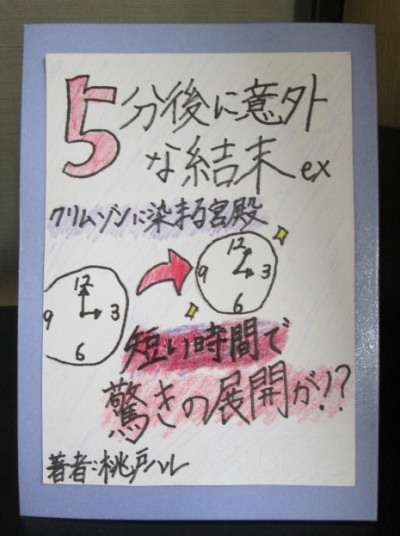 5分後に意外
な結末ex
クリムゾンに染まる宮殿
12
9 3
6
12
9 3
6
短い時間で
驚きの展開が!?
著者:桃戸ハル